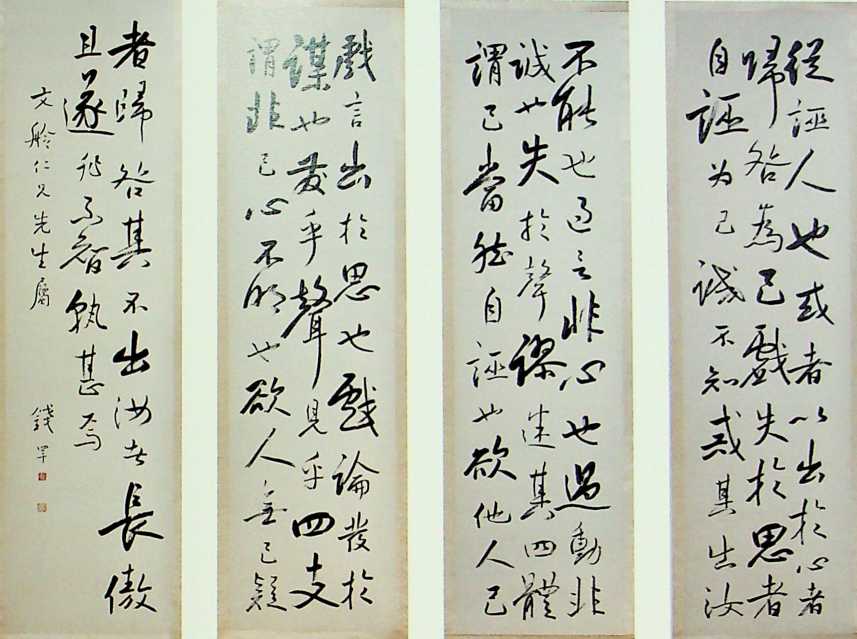 戲言出於思也戲論發於
謀也發乎聲見乎四支
謂非己心不明也欲人無己疑
不能也過言非心也過動非
誠也失於聲謬迷其四體
謂己當然自誣也欲他人己
從誣人也或者以出於心者
歸咎為己戲失於思者
自誣为己誠不知戒其出汝
者歸咎其不出汝者長傲
且遂非不智孰甚焉
文舲仁兄先生屬
錢罕